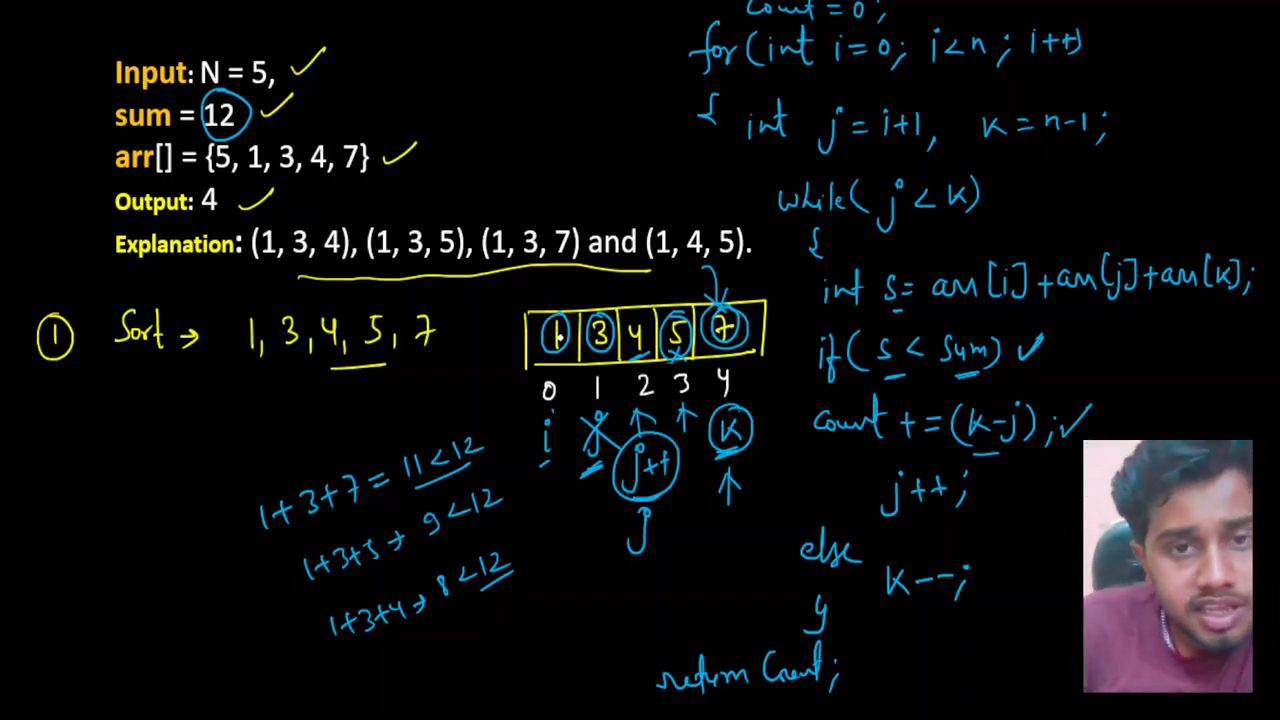 Input: N = 5,
sum = 12
arr[] = {5, 1, 3, 4, 7}
Output: 4
Explanation: (1, 3, 4), (1, 3, 5), (1, 3, 7) and (1, 4, 5).
1 Sort → 1, 3, 4, 5, 7
1 3 4 5 7
0 1 2 3 4
i j k
j++
j
1+3+7 = 11 < 12
1+3+5 → 9 < 12
1+3+4 → 8 < 12
count = 0;
for(int i=0; i<n; i++)
{ int j = i+1, k = n-1;
while( j < k)
{
int s = arr[i]+arr[j]+arr[k];
if( s < sum)
count += (k-j);
j++;
else
k--;
}
return count;